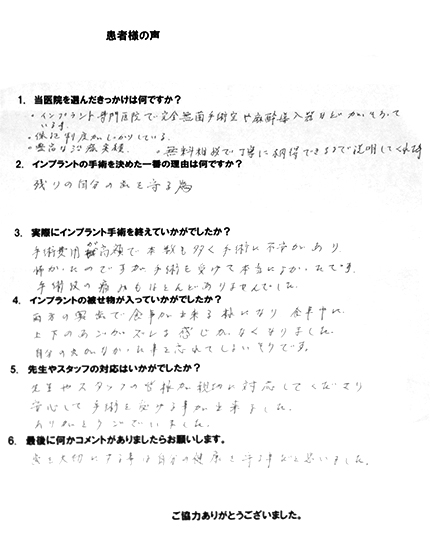 患者様の声
1. 当医院を選んだきっかけは何ですか？
・インプラント専門医院で完全無菌手術室や麻酔導入器などがそろって
います。
・保証制度がしっかりしている。
・豊富な治療実績　・無料相談で丁寧に納得できるまで説明してくれる
2. インプラントの手術を決めた一番の理由は何ですか？
残りの自分の歯を守る為
3. 実際にインプラント手術を終えていかがでしたか？
手術費用が高額で本数も多く手術に不安があり
怖かったのですが手術を受けて本当によかったです。
手術後の痛みもほとんどありませんでした。
4. インプラントの被せ物が入っていかがでしたか？
両方の奥歯で食事が出来る様になり 食事中に
上下のあごがズレる感じがなくなりました。
自分の歯がなかった事を忘れてしまいそうです。
5. 先生やスタッフの対応はいかがでしたか？
先生やスタッフの皆様が親切に対応してくださり
安心して手術を受ける事が出来ました。
ありがとうございました。
6. 最後に何かコメントがありましたらお願いします。
歯を大切にする事は自分の健康を守る事だと思いました。
ご協力ありがとうございました。